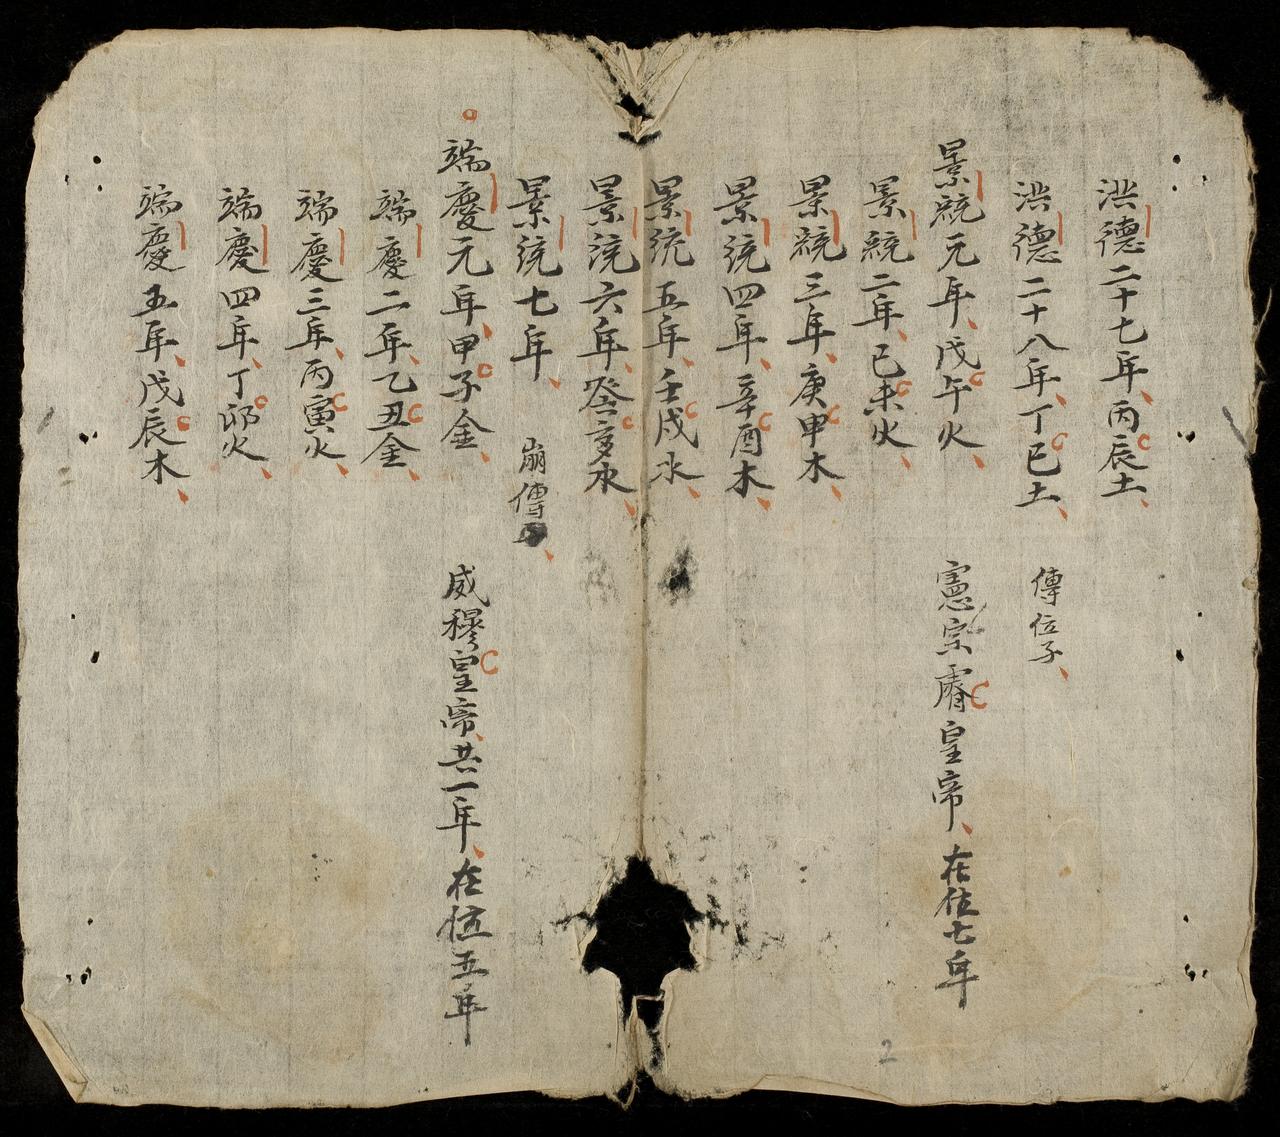 洪德二十七年丙辰土
洪德二十八年丁巳土 傳位子
景統元年戊午火 憲宗睿皇帝在位七年
景統二年己未火
景統三年庚申木
景統四年辛酉木
景統五年壬戌水
景統六年癸亥水
景統七年 崩傳
端慶元年甲子金 威穆皇帝共一年在位五年
端慶二年乙丑金
端慶三年丙寅火
端慶四年丁卯火
端慶五年戊辰木
2